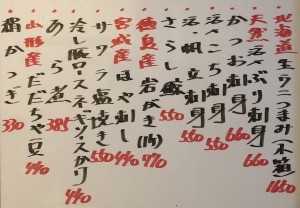 北海道産 生うにつまみ(木箱) 1650
天然活〆ぶり刺身 660
かつお刺身 660
活〆こち刺身 550
活〆帆立刺身 550
さらし鯨 550
徳島産 岩がき(1ヶ) 770
宮城産 ほや刺し 440
サワラ塩焼き 550
冷し豚ロースネギソースがけ 440
あら煮 385
山形産 だだちゃ豆 440
絹かつぎ 330